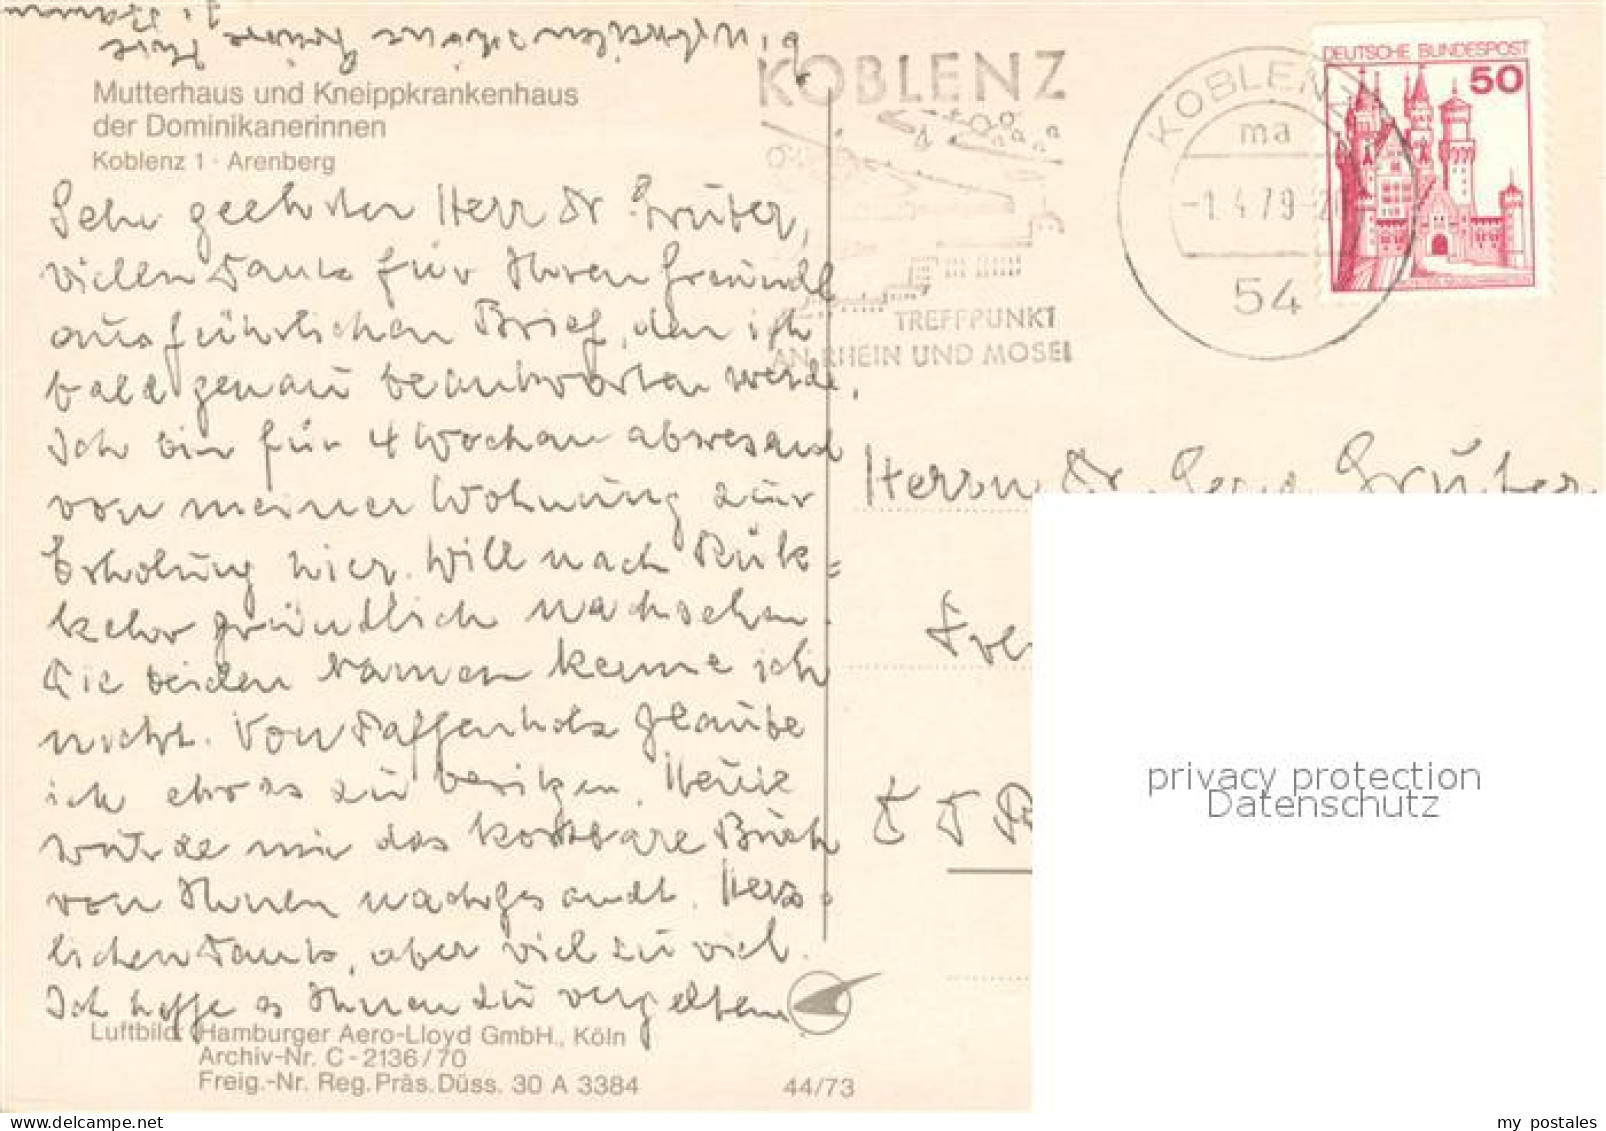 Mutterhaus und Kneippkrankenhaus
der Dominikanerinnen
Koblenz 1 · Arenberg
Sehr geehrter Herr Dr. Gruber,
vielen Dank für Ihren freundl
ausführlichen Brief, den ich
bald genau beantworten werde.
Ich bin für 4 Wochen abwesend
von meiner Wohnung zur
Erholung hier. Will nach Rük=
kehr gründlich nachsehen.
Die beiden Namen kenne ich
nicht. Von Paffenholz glaube
ich etwas zu besitzen. Heute
wurde mir das kostbare Buch
von Ihnen nachgesandt. Herz=
lichen Dank, aber viel zu viel.
Ich hoffe es Ihnen zu vergelten
Luftbild: Hamburger Aero-Lloyd GmbH., Köln
Archiv-Nr. C-2136/70
Freig.-Nr. Reg.Präs.Düss. 30 A 3384
44/73
KOBLENZ
TREFFPUNKT
AN RHEIN UND MOSEL
KOBLENZ
ma
-1.4.79-21
54
DEUTSCHE BUNDESPOST
50
Herrn Dr. Gruber
privacy protection
Datenschutz
my postales